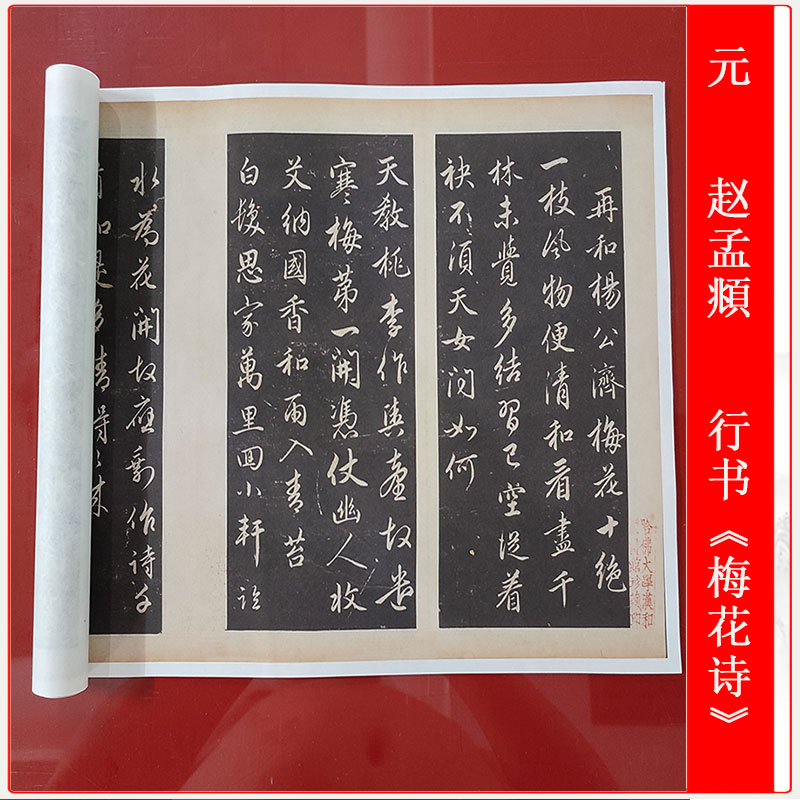 元 赵孟頫 行书《梅花诗》
再和楊公濟梅花十絕
一枝風物便清和看盡千
林未覺多結習已空從着
袂不須天女問如何
哈佛大學漢和
天教桃李作輿臺故遣
寒梅第一開憑仗幽人收
艾納國香和雨入青苔
白髮思家萬里回小軒臨
水為花開故應剩作詩千
知是多情得々來